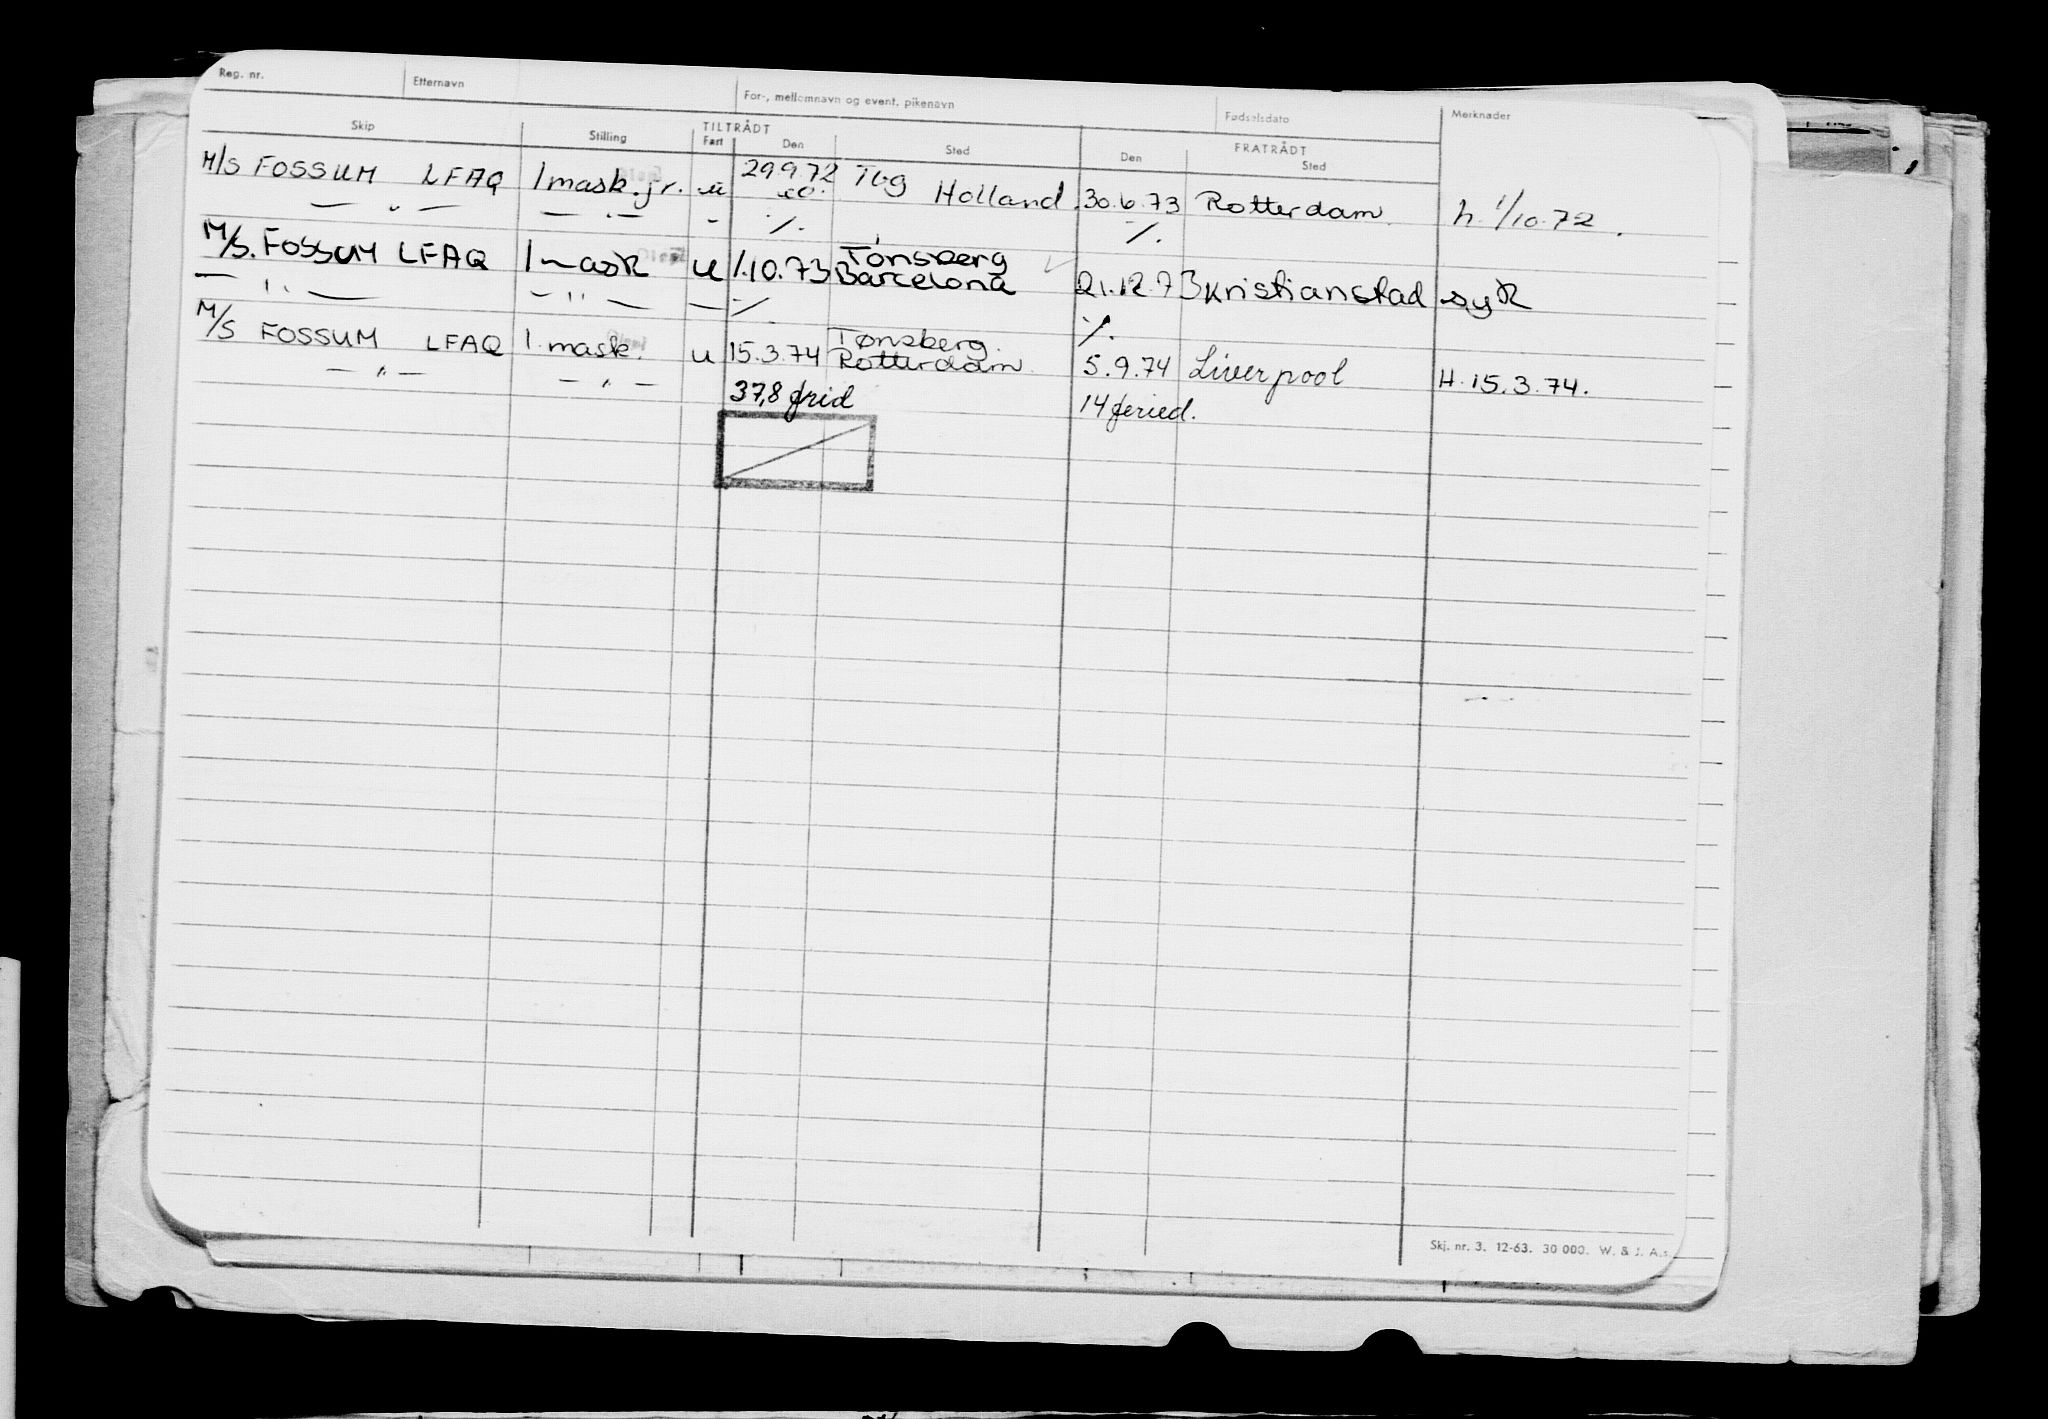 Reg. nr. Etternavn For-, mellomnavn og event. pikenavn Fødselsdato Merknader
TILTRÅDT FRATRÅDT
Skip Stilling Fart Den Sted Den Sted
M/S FOSSUM LFAQ 1 mask. jr. u 29.9.72 Tbg Holland 30.6.73 Rotterdam h. 1/10.72.
— " — — " — - %. %.
M/S. FOSSUM LFAQ 1 mask u 1.10.73 Tønsberg
Barcelona 21.12.73 Kristianstad syk
— " — — " — — % %.
M/S FOSSUM LFAQ 1. mask. u 15.3.74 Tønsberg.
Rotterdam 5.9.74 Liverpool H. 15.3.74.
— " — — " — 37,8 frid 14 feried.
Skj. nr. 3. 12-63. 30 000. W. & J. A.s.